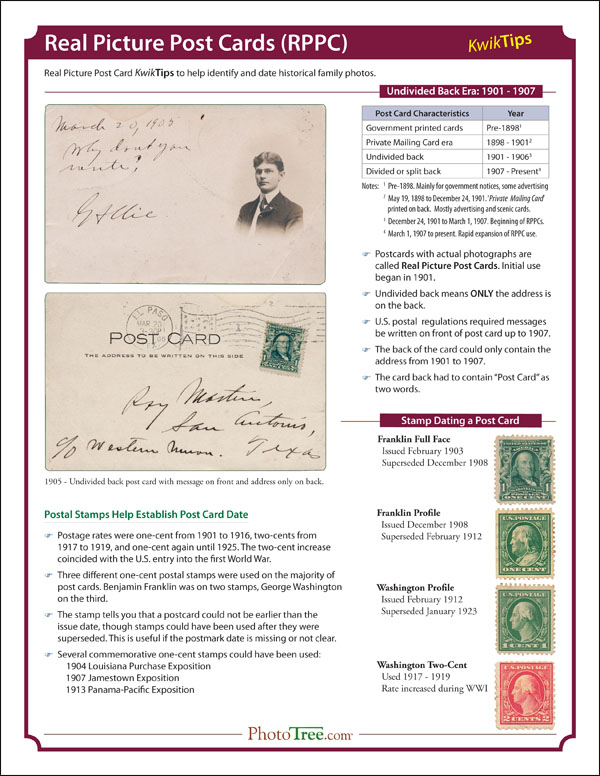 Real Picture Post Cards (RPPC)
KwikTips
Real Picture Post Card KwikTips to help identify and date historical family photos.
March 20, 1905
Why don't you
write?
G Allie
EL PASO
MAR 20
POST CARD
THE ADDRESS TO BE WRITTEN ON THIS SIDE
Roy Martin,
San Antonio,
c/o Western Union. Texas
1905 - Undivided back post card with message on front and address only on back.
Postal Stamps Help Establish Post Card Date
☞ Postage rates were one-cent from 1901 to 1916, two-cents from
1917 to 1919, and one-cent again until 1925. The two-cent increase
coincided with the U.S. entry into the first World War.
☞ Three different one-cent postal stamps were used on the majority of
post cards. Benjamin Franklin was on two stamps, George Washington
on the third.
☞ The stamp tells you that a postcard could not be earlier than the
issue date, though stamps could have been used after they were
superseded. This is useful if the postmark date is missing or not clear.
☞ Several commemorative one-cent stamps could have been used:
1904 Louisiana Purchase Exposition
1907 Jamestown Exposition
1913 Panama-Pacific Exposition
Undivided Back Era: 1901 - 1907
Post Card Characteristics Year
Government printed cards Pre-1898¹
Private Mailing Card era 1898 - 1901²
Undivided back 1901 - 1906³
Divided or split back 1907 - Present⁴
Notes: ¹ Pre-1898. Mainly for government notices, some advertising
² May 19, 1898 to December 24, 1901. 'Private Mailing Card'
printed on back. Mostly advertising and scenic cards.
³ December 24, 1901 to March 1, 1907. Beginning of RPPCs.
⁴ March 1, 1907 to present. Rapid expansion of RPPC use.
☞ Postcards with actual photographs are
called Real Picture Post Cards. Initial use
began in 1901.
☞ Undivided back means ONLY the address is
on the back.
☞ U.S. postal regulations required messages
be written on front of post card up to 1907.
☞ The back of the card could only contain the
address from 1901 to 1907.
☞ The card back had to contain "Post Card" as
two words.
Stamp Dating a Post Card
Franklin Full Face
Issued February 1903
Superseded December 1908
ONE CENT
Franklin Profile
Issued December 1908
Superseded February 1912
U.S.POSTAGE
ONE CENT
Washington Profile
Issued February 1912
Superseded January 1923
U.S.POSTAGE
1 CENT 1
Washington Two-Cent
Used 1917 - 1919
Rate increased during WWI
U.S.POSTAGE
2 CENTS 2
PhotoTree.com